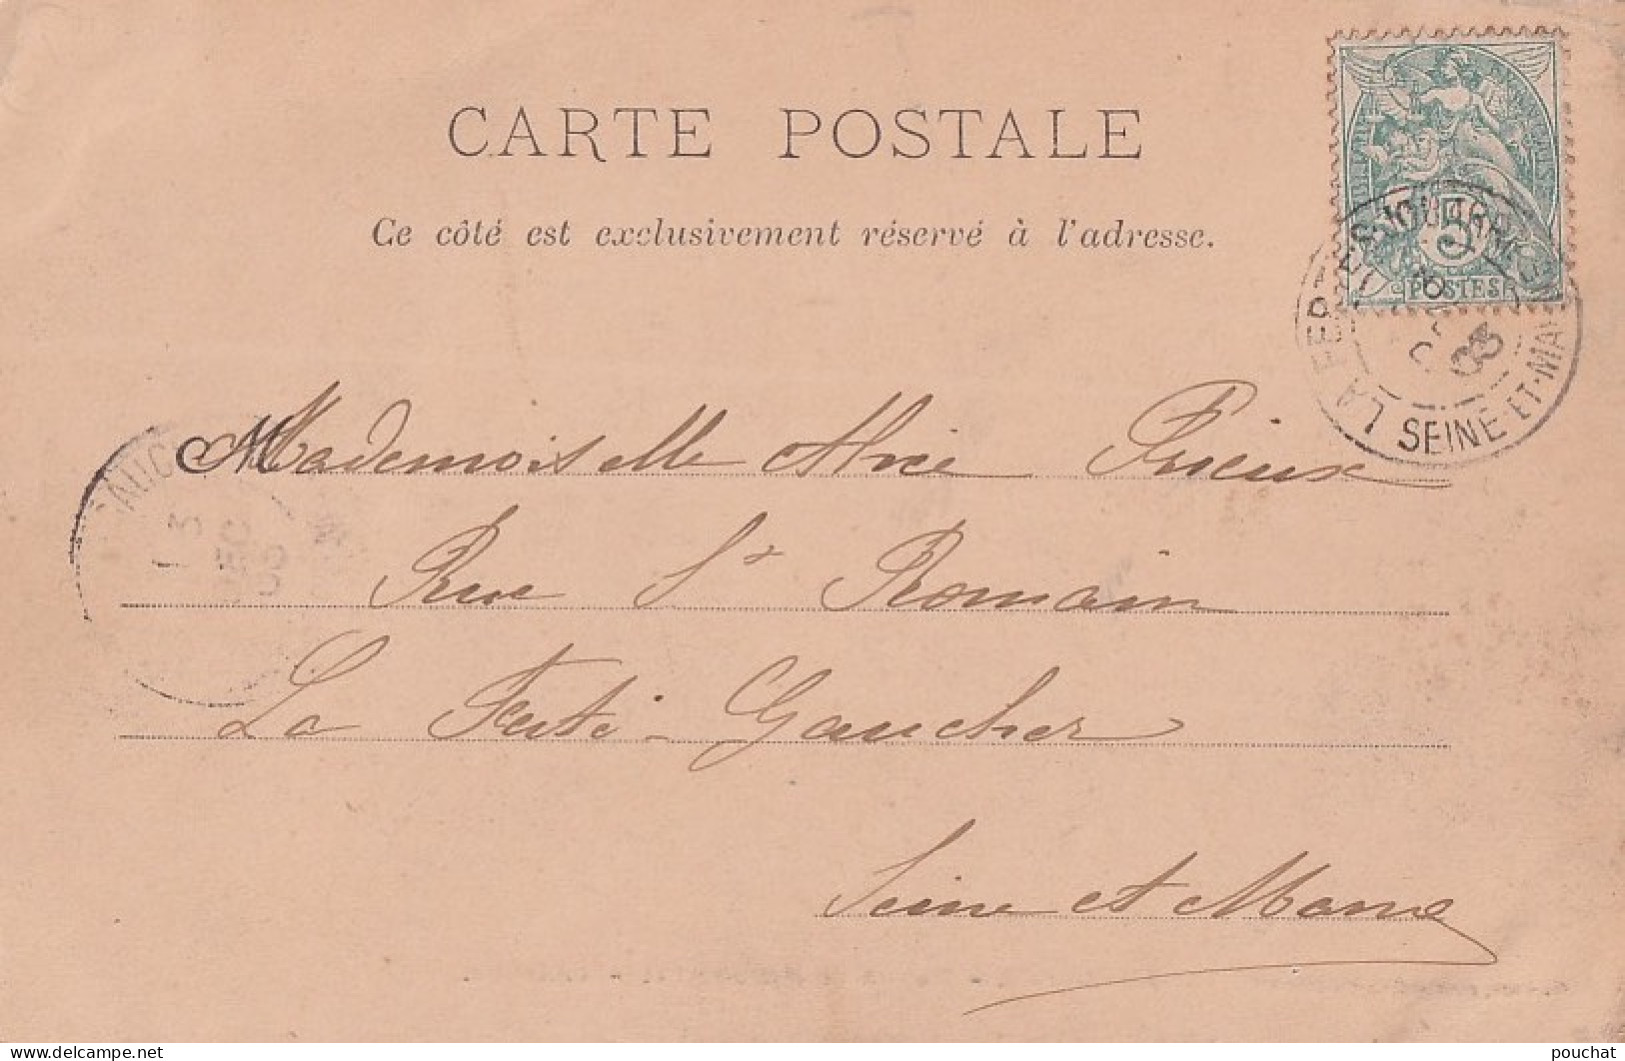 CARTE POSTALE
Ce côté est exclusivement réservé à l'adresse.
5
POSTES
LA FERTÉ-S-JOUARRE
SEINE-ET-MA
03
Mademoiselle Alice Prieux
Rue St Romain
La Ferté-Gaucher
Seine et Marne
pouchat